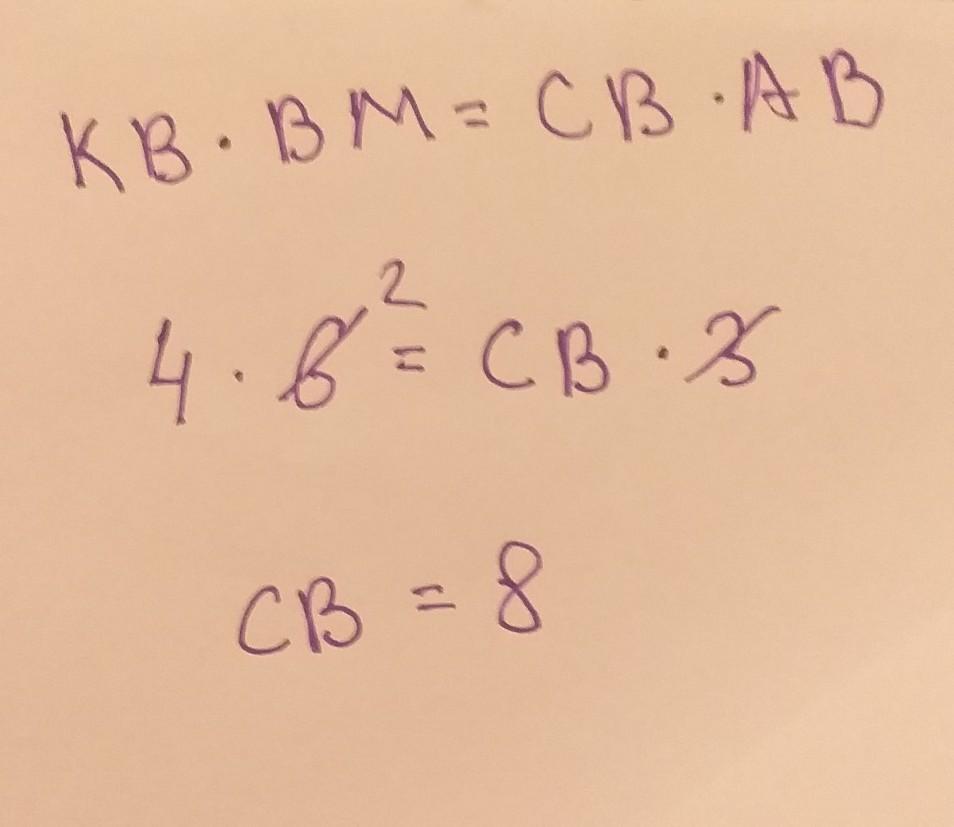 KB · BM = CB · AB
4 · 6 2 = CB · 3
CB = 8